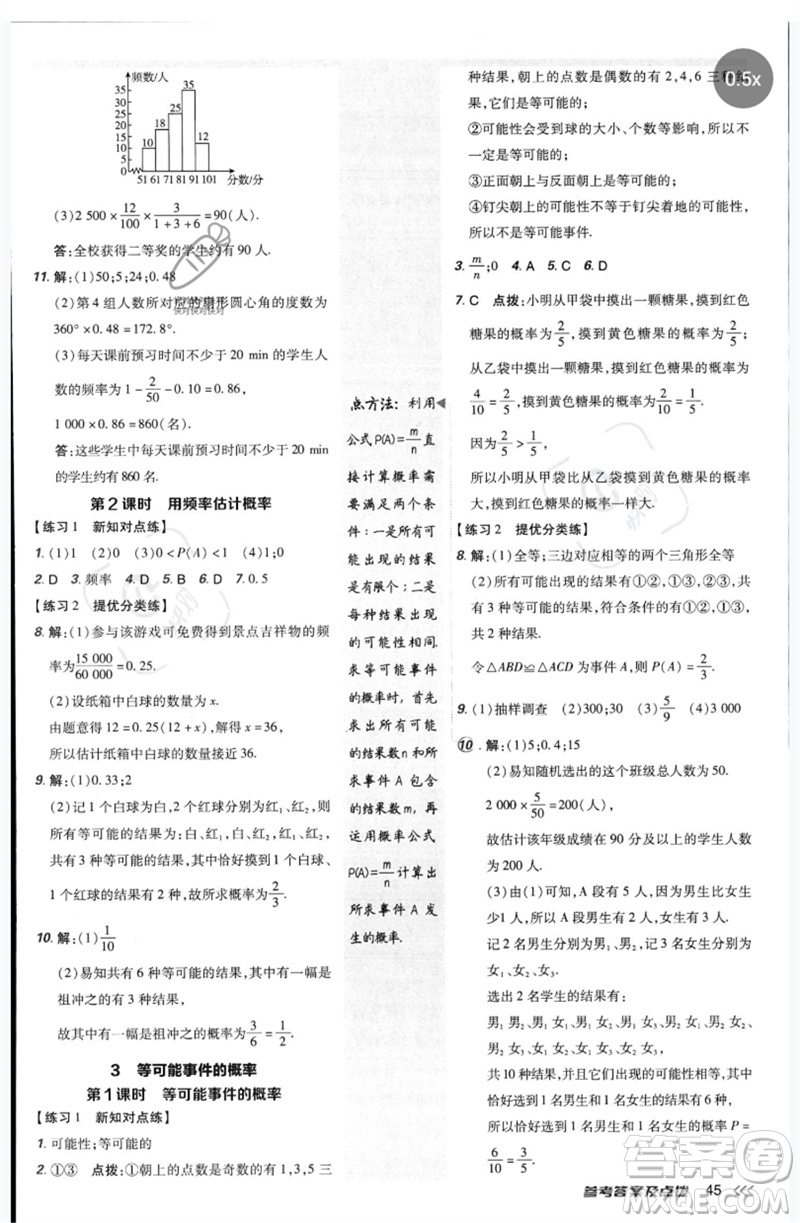 频数/人
35
30
25
20
15
10
5
0
10
18
25
35
12
51 61 71 81 91 101 分数/分
(3)2 500×12/100×3/(1+3+6)=90(人).
答:全校获得二等奖的学生约有 90 人.
11. 解:(1)50;5;24;0.48
(2)第 4 组人数所对应的扇形圆心角的度数为
360°×0.48=172.8°.
(3)每天课前预习时间不少于 20 min 的学生人
数的频率为 1-2/50-0.10=0.86,
1 000×0.86=860(名).
答:这些学生中每天课前预习时间不少于 20 min
的学生约有 860 名.
第 2 课时 用频率估计概率
【练习 1 新知对点练】
1. (1)1 (2)0 (3)0<P(A)<1
2. D 3. 频率 4. D 5. D 6. D 7. 0.5
【练习 2 提优分类练】
8. 解:(1)参与该游戏可免费得到景点吉祥物的频
率为15 000/60 000=0.25.
(2)设纸箱中白球的数量为 x.
由题意得 12=0.25(12+x),解得 x=36.
所以估计纸箱中白球的数量接近 36.
9. 解:(1)0.33;2
(2)记 1 个白球为白,2 个红球分别为红₁、红₂,则
所有等可能的结果为:白、红₁,白、红₂,红₁、红₂,
共有 3 种等可能的结果,其中恰好摸到 1 个白球、
1 个红球的结果有 2 种,故所求的概率为2/3.
10. 解:(1)1/10
(2)易知共有 6 种等可能的结果,其中有一幅是
祖冲之的有 3 种结果,
故其中有一幅是祖冲之的概率为3/6=1/2.
3 等可能事件的概率
第 1 课时 等可能事件的概率
【练习 1 新知对点练】
1. 可能性;等可能的
2. ①③ 点拨:①朝上的点数是奇数的有 1,3,5 三
点方法:利用
公式 P(A)=m/n直
接计算概率需
要满足两个条
件:一是所有可
能出现的结果
是有限个;二是
每种结果出现
的可能性相同.
求等可能事件
的概率时,首先
求出所有可能
的结果数n和所
求事件 A 包含
的结果数m,再
运用概率公式
P(A)=m/n计算出
所求事件 A 发
生的概率.
种结果,朝上的点数是偶数的有 2,4,6 三种结
果,它们是等可能的;
②可能性会受到球的大小、个数等影响,所以不
一定是等可能的;
③正面朝上与反面朝上的可能性相同,所以是等
可能的;
④钉尖朝上的可能性与钉尖着地的可能性不相
同,所以不是等可能事件.
3. m/n;0 4. A 5. C 6. D
7. C 点拨:小明从甲袋中摸出一颗糖果,摸到红色
糖果的可能性为2/5,摸到黄色糖果的可能性为3/5;
从乙袋中摸出一颗糖果,摸到红色糖果的可能性为
4/10=2/5,摸到黄色糖果的可能性为2/10=1/5.
因为2/5>1/5,
所以小明从甲袋比从乙袋更容易摸到黄色糖果,
吃到红色糖果的概率一样大.
【练习 2 提优分类练】
8. 解:(1)全等;三边对应相等的两个三角形全等
(2)所有可能出现的结果有①②,①③,②③,共
3 种等可能的结果,符合条件的有①②,①③,
共 2 种结果.
令△ABD≌△ACD 为事件 A,则 P(A)=2/3.
9. (1)抽样调查 (2)300;30 (3)5/9 (4)3 000
10. 解:(1)5;0.4;15
(2)易知随机选出的这个班级总人数为 50.
2 000×5/50=200(人),
故估计该年级成绩在 90 分及以上的学生人数
为 200 人.
(3)由(1)可知,A 段有 5 人,因为男生比女生
少1 人,所以 A 段有男生 2 人,女生有 3 人.
记 2 名男生分别为男₁、男₂,记 3 名女生分别
为女₁、女₂、女₃.
选出 2 名学生的结果有:
男₁ 男₂,男₁ 女₁,男₁ 女₂,男₁ 女₃,男₂ 女₁,
男₂ 女₂,男₂ 女₃,女₁ 女₂,女₁ 女₃,女₂ 女₃,
共 10 种结果,并且它们出现的可能性相等.
其中包含一男一女的结果有 6 种,
所以恰好选到一名男生和一名女生的概率 P=
6/10=3/5.
参考答案及点拨 45
0.5x
快对快对快对
答案圈
MXQE.COM